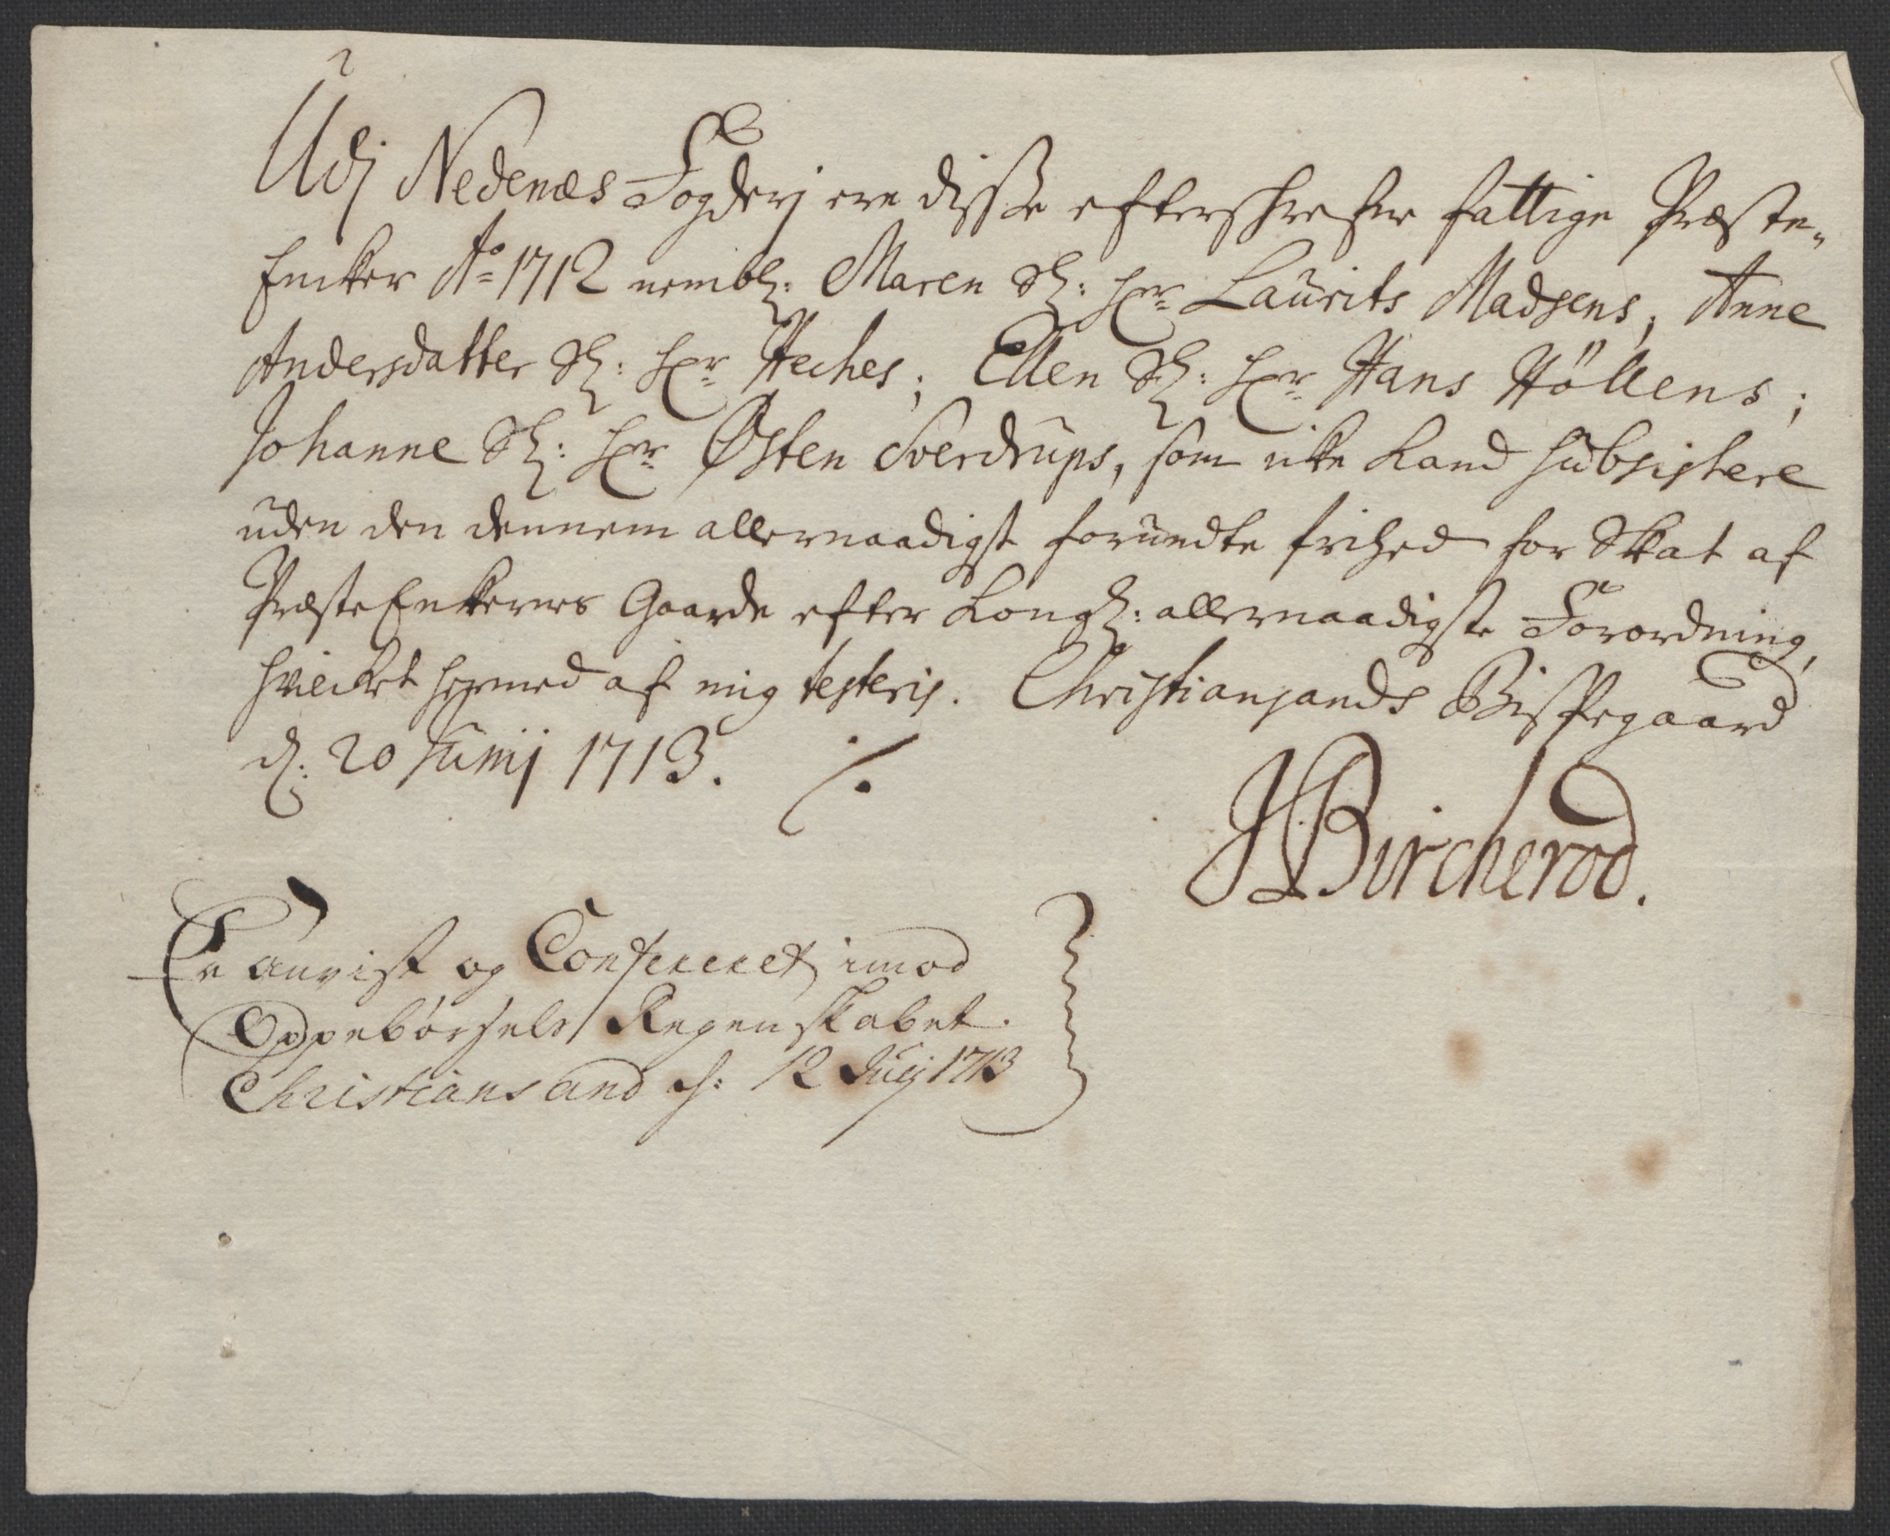 Udj Nedenæs Fogderj ere disse efterschrefne fattige Præste-
Encker Ao 1712 nembl: Maren Sl: Hr Laurits Madsens, Anne
Andersdatter Sl: Hr Heches; Ellen Sl: Hr Hans Höllens;
Johanne Sl: Hr Østen Sverdrups, som icke kand subsistere
uden den dennem allernaadigst forundte frihed for Skat af
PræsteEnkernes Gaarde efter Kongl: allernaadigste Forordning,
hvilcket hermed af mig testeris. Christiansands Bispegaard
d: 20 Junij 1713.
JBircherod.
Er anvist og Confereret imod
Oppebørsels Regenskabet.
Christiansand d: 12 Julij 1713